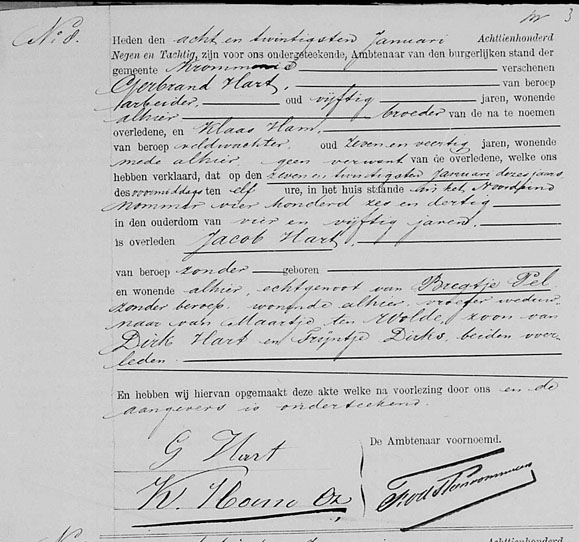 3
No 8.
Heden den acht en twintigsten Januari Achttienhonderd
Negen en Tachtig, zijn voor ons ondergeteekende, Ambtenaar van den burgerlijken stand der
gemeente Krommenie verschenen
Gerbrand Hart, van beroep
arbeider, oud vijftig jaren, wonende
alhier broeder van de na te noemen
overledene, en Klaas Ham,
van beroep veldwachter, oud zeven en veertig jaren, wonende
mede alhier geen verwant van de overledene, welke ons
hebben verklaard, dat op den zeven en twintigsten Januari dezes jaars
des voormiddags ten elf ure, in het huis staande in het Noordeind
Nommer vier honderd zes en dertig
in den ouderdom van vier en vijftig jaren
is overleden Jacob Hart,
van beroep zonder geboren
en wonende alhier, echtgenoot van Bregtje Pel
zonder beroep, wonende alhier, vroeger weduw-
naar van Maartje ten Wolde, zoon van
Dirk Hart en Trijntje Dirks, beiden over-
leden.
En hebben wij hiervan opgemaakt deze akte welke na voorlezing door ons en de
aangevers is onderteekend.
G Hart
De Ambtenaar voornoemd.
K. Ham Oz
Januari Achttienhonderd